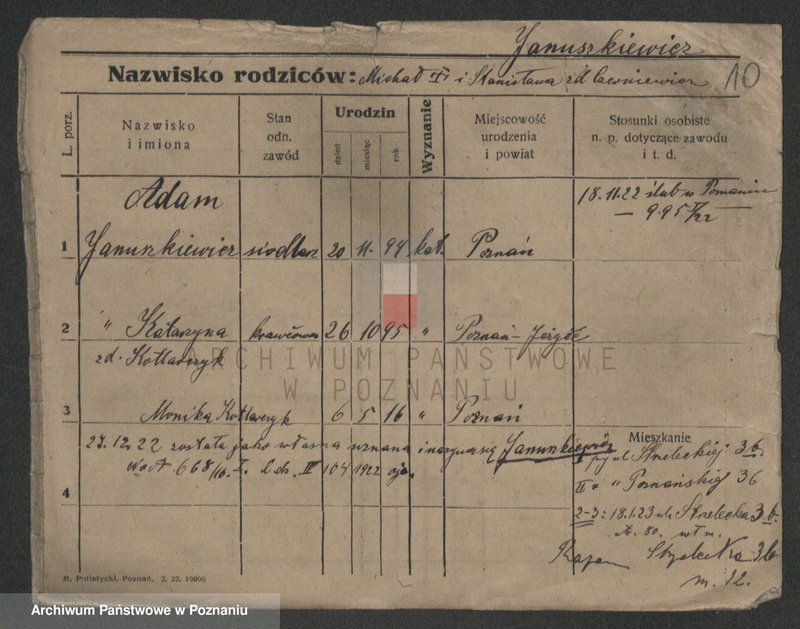 Januszkiewicz
Nazwisko rodziców: Michał † i Stanisława zd Czerniewicz 10
L. porz.
Nazwisko i imiona
Stan odn. zawód
Urodzin
dzień miesiąc rok
Wyznanie
Miejscowość urodzenia i powiat
Stosunki osobiste n. p. dotyczące zawodu i t. d.
Adam
18.11.22 ślub w Poznaniu
1 Januszkiewicz siodlarz 20 11. 94 kat. Poznań
2 " Katarzyna krawcowa 26 10 95 " Poznań-Jeżyce
zd. Kotlarczyk
ARCHIWUM PAŃSTWOWE
W POZNANIU
3 Monika Kotlarczyk 6 5 16 " Poznań
27.12.22 została jako własna uznana i nazywa się Januszkiewicz
No A 668/16. I. 104 1922
4
Mieszkanie
Strzeleckiej 36.
II " " Poznańskiej 36
2-3: 18.1.23 ul. Strzelecka 36.
Strzelecka 36
m. 12.
M. Putiatycki, Poznań, 2. 22. 10000
Archiwum Państwowe w Poznaniu